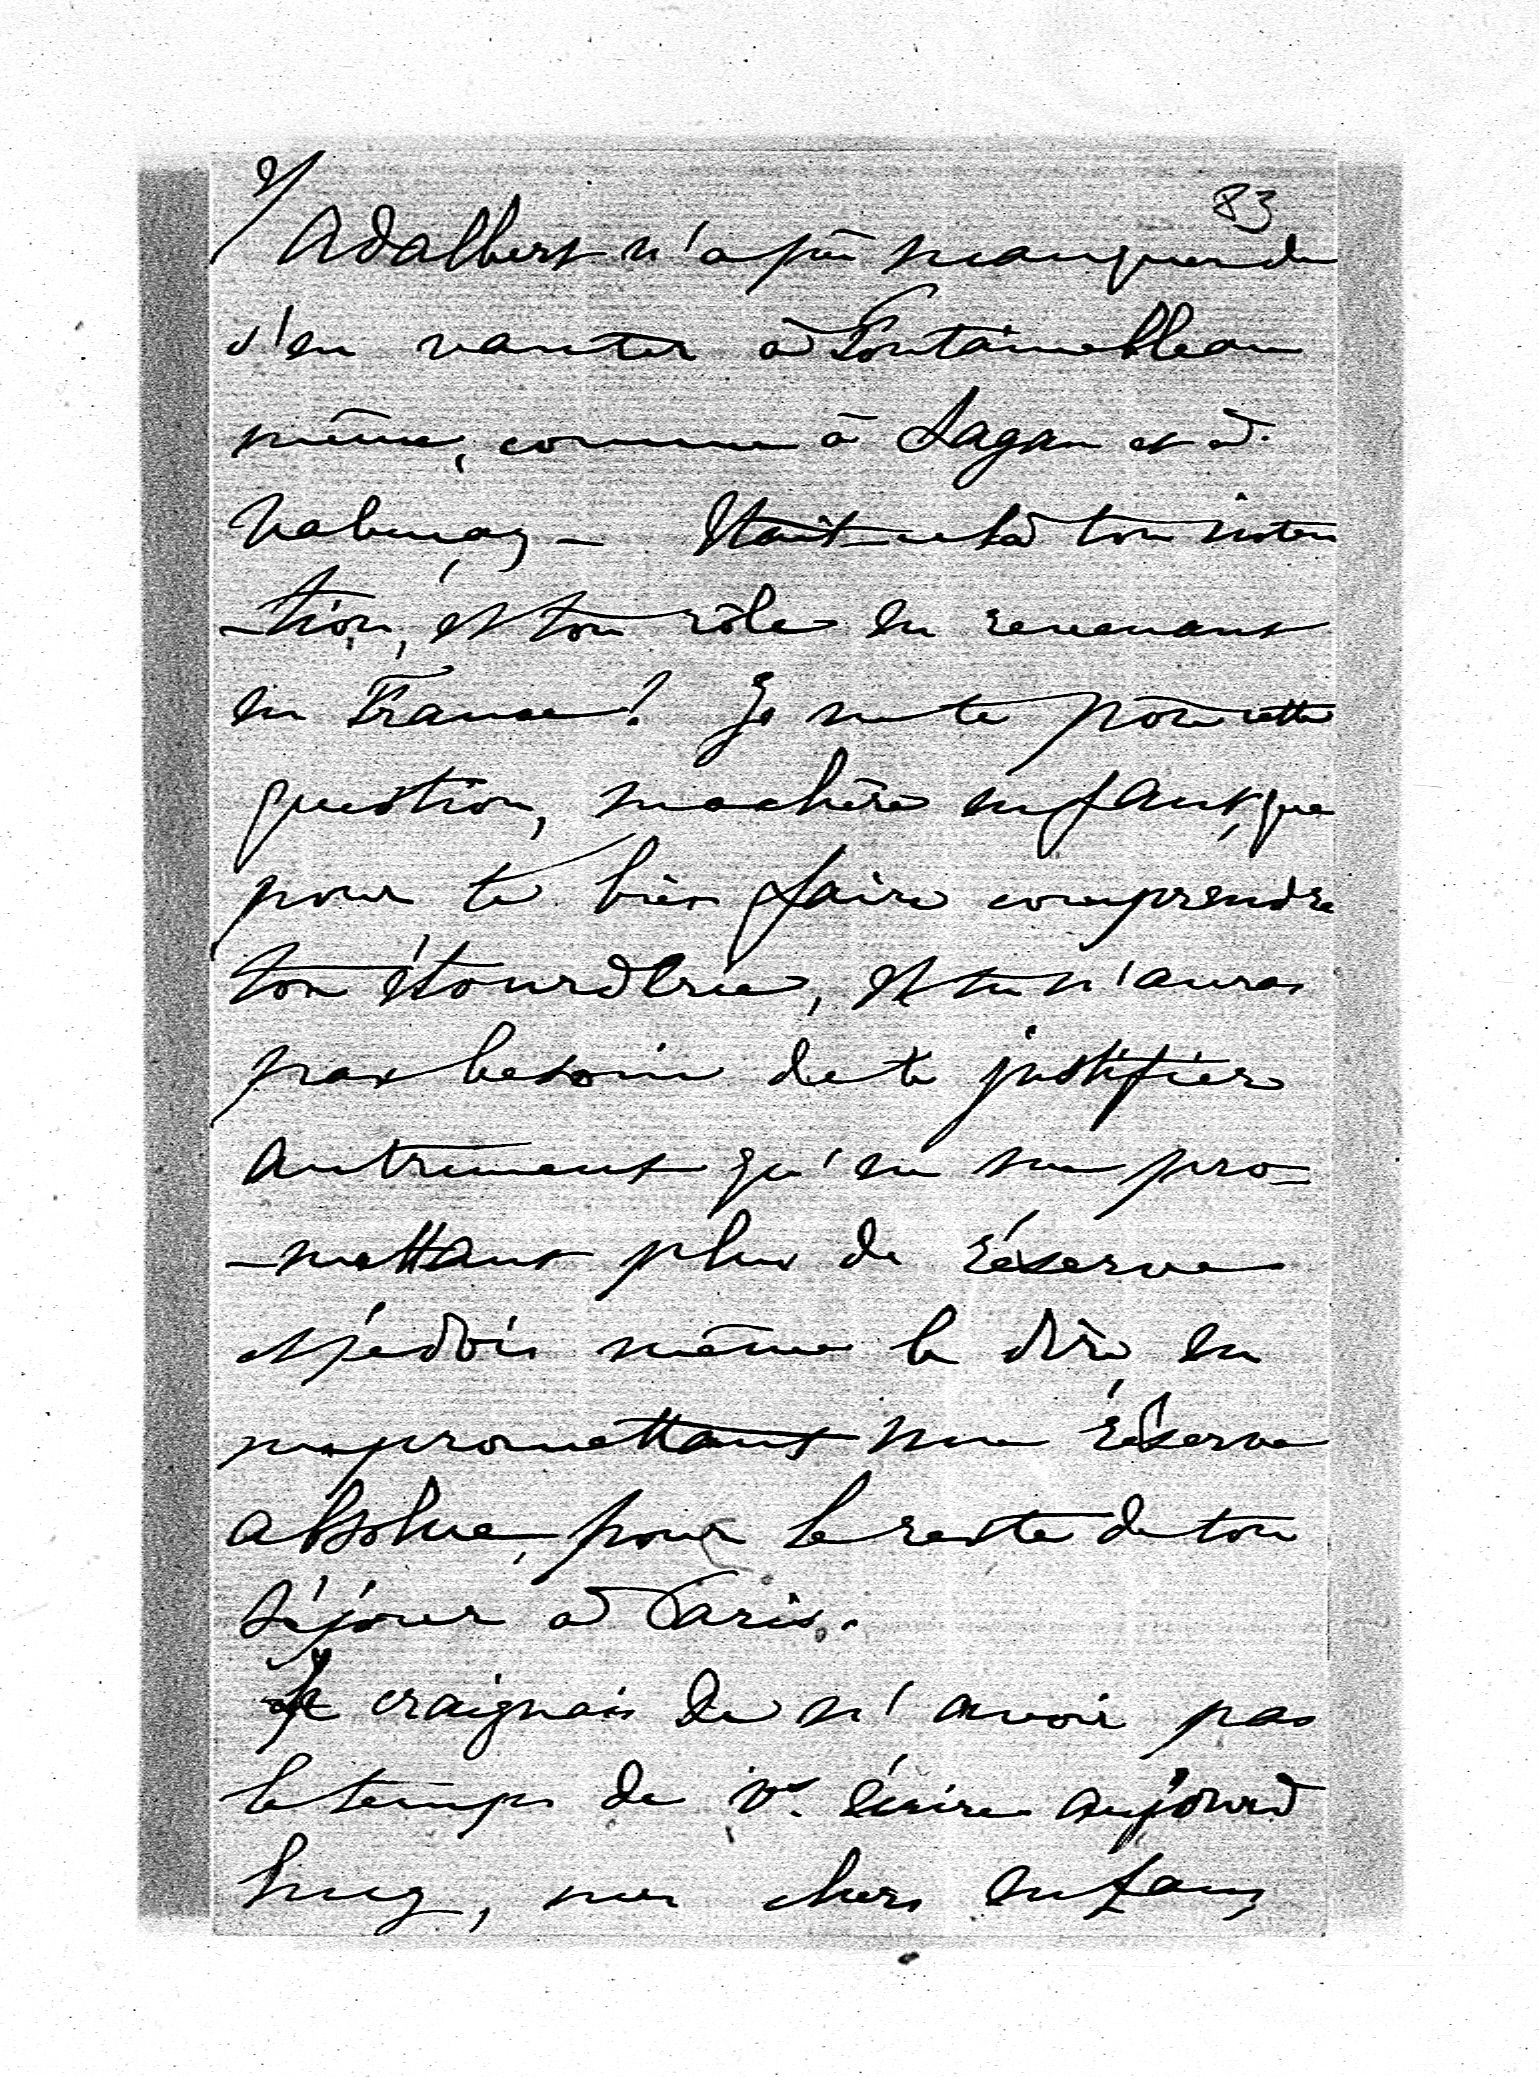 2/
83
Adalbert n'a pû manquer de
s'en vanter à Fontainebleau
même, comme à Sagan et à
Valençay – Etait-ce là ton inten
-tion, et ton rôle en revenant
en France! Je ne te pose cette
question, ma chère enfant, que
pour te bien faire comprendre
ton étourderie, et tu n'auras
pas besoin de te justifier
autrement qu'en me pro-
-mettant plus de réserve
et je dois même le dire en
me promettant une réserve
absolue, pour le reste de ton
séjour à Paris.
Je craignais de n'avoir pas
le temps de vs. écrire aujourd
huy, mes chers enfans